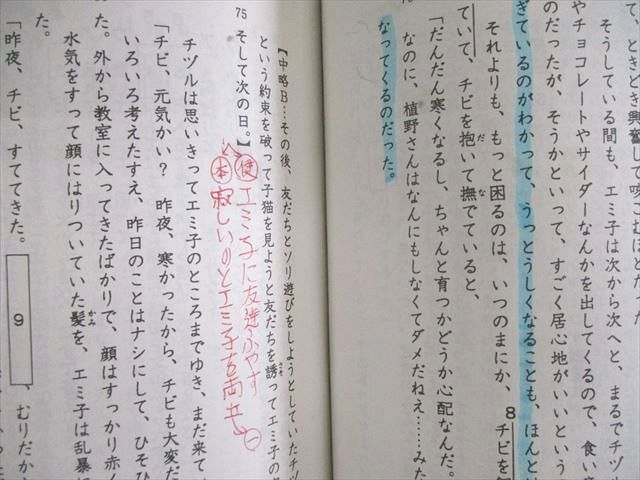 、ときどき興奮して
そうしている間も、エミ子は次から次へと、まるでチヅル
やチョコレートやサイダーなんかを出してくるので、食い意
のだったが、そうかといって、すごく居心地がいいという
ぎているのがわかって、うっとうしくなることも、ほんと
それよりも、もっと困るのは、いつのまにか、8チビを
ていて、チビを抱いて撫でていると、
だ
な
「だんだん寒くなるし、ちゃんと育つかどうか心配なんだ。
なのに、植野さんはなんにもしなくてダメだねえ……みた
なってくるのだった。
【中略B…その後、友だちとソリ遊びをしようとしていたチヅ
という約束を破って子猫を見ようと友だちを誘ってエミ子の
さそ
75 そして次の日。】
エミ子に友達ふやす
本 寂しいのとエミ子を両立
チヅルは思いきってエミ子のところまでゆき、まだ来て
「チビ、元気かい? 昨夜、寒かったから、チビも大変だ
いろいろ考えたすえ、昨日のことはナシにして、ひそひ
た。外から教室に入ってきたばかりで、顔はすっかり赤く
水気をすって顔にはりついていた髪を、エミ子は乱暴に
かみ
た。
「昨夜、チビ、すててきた。 9 、むりだか